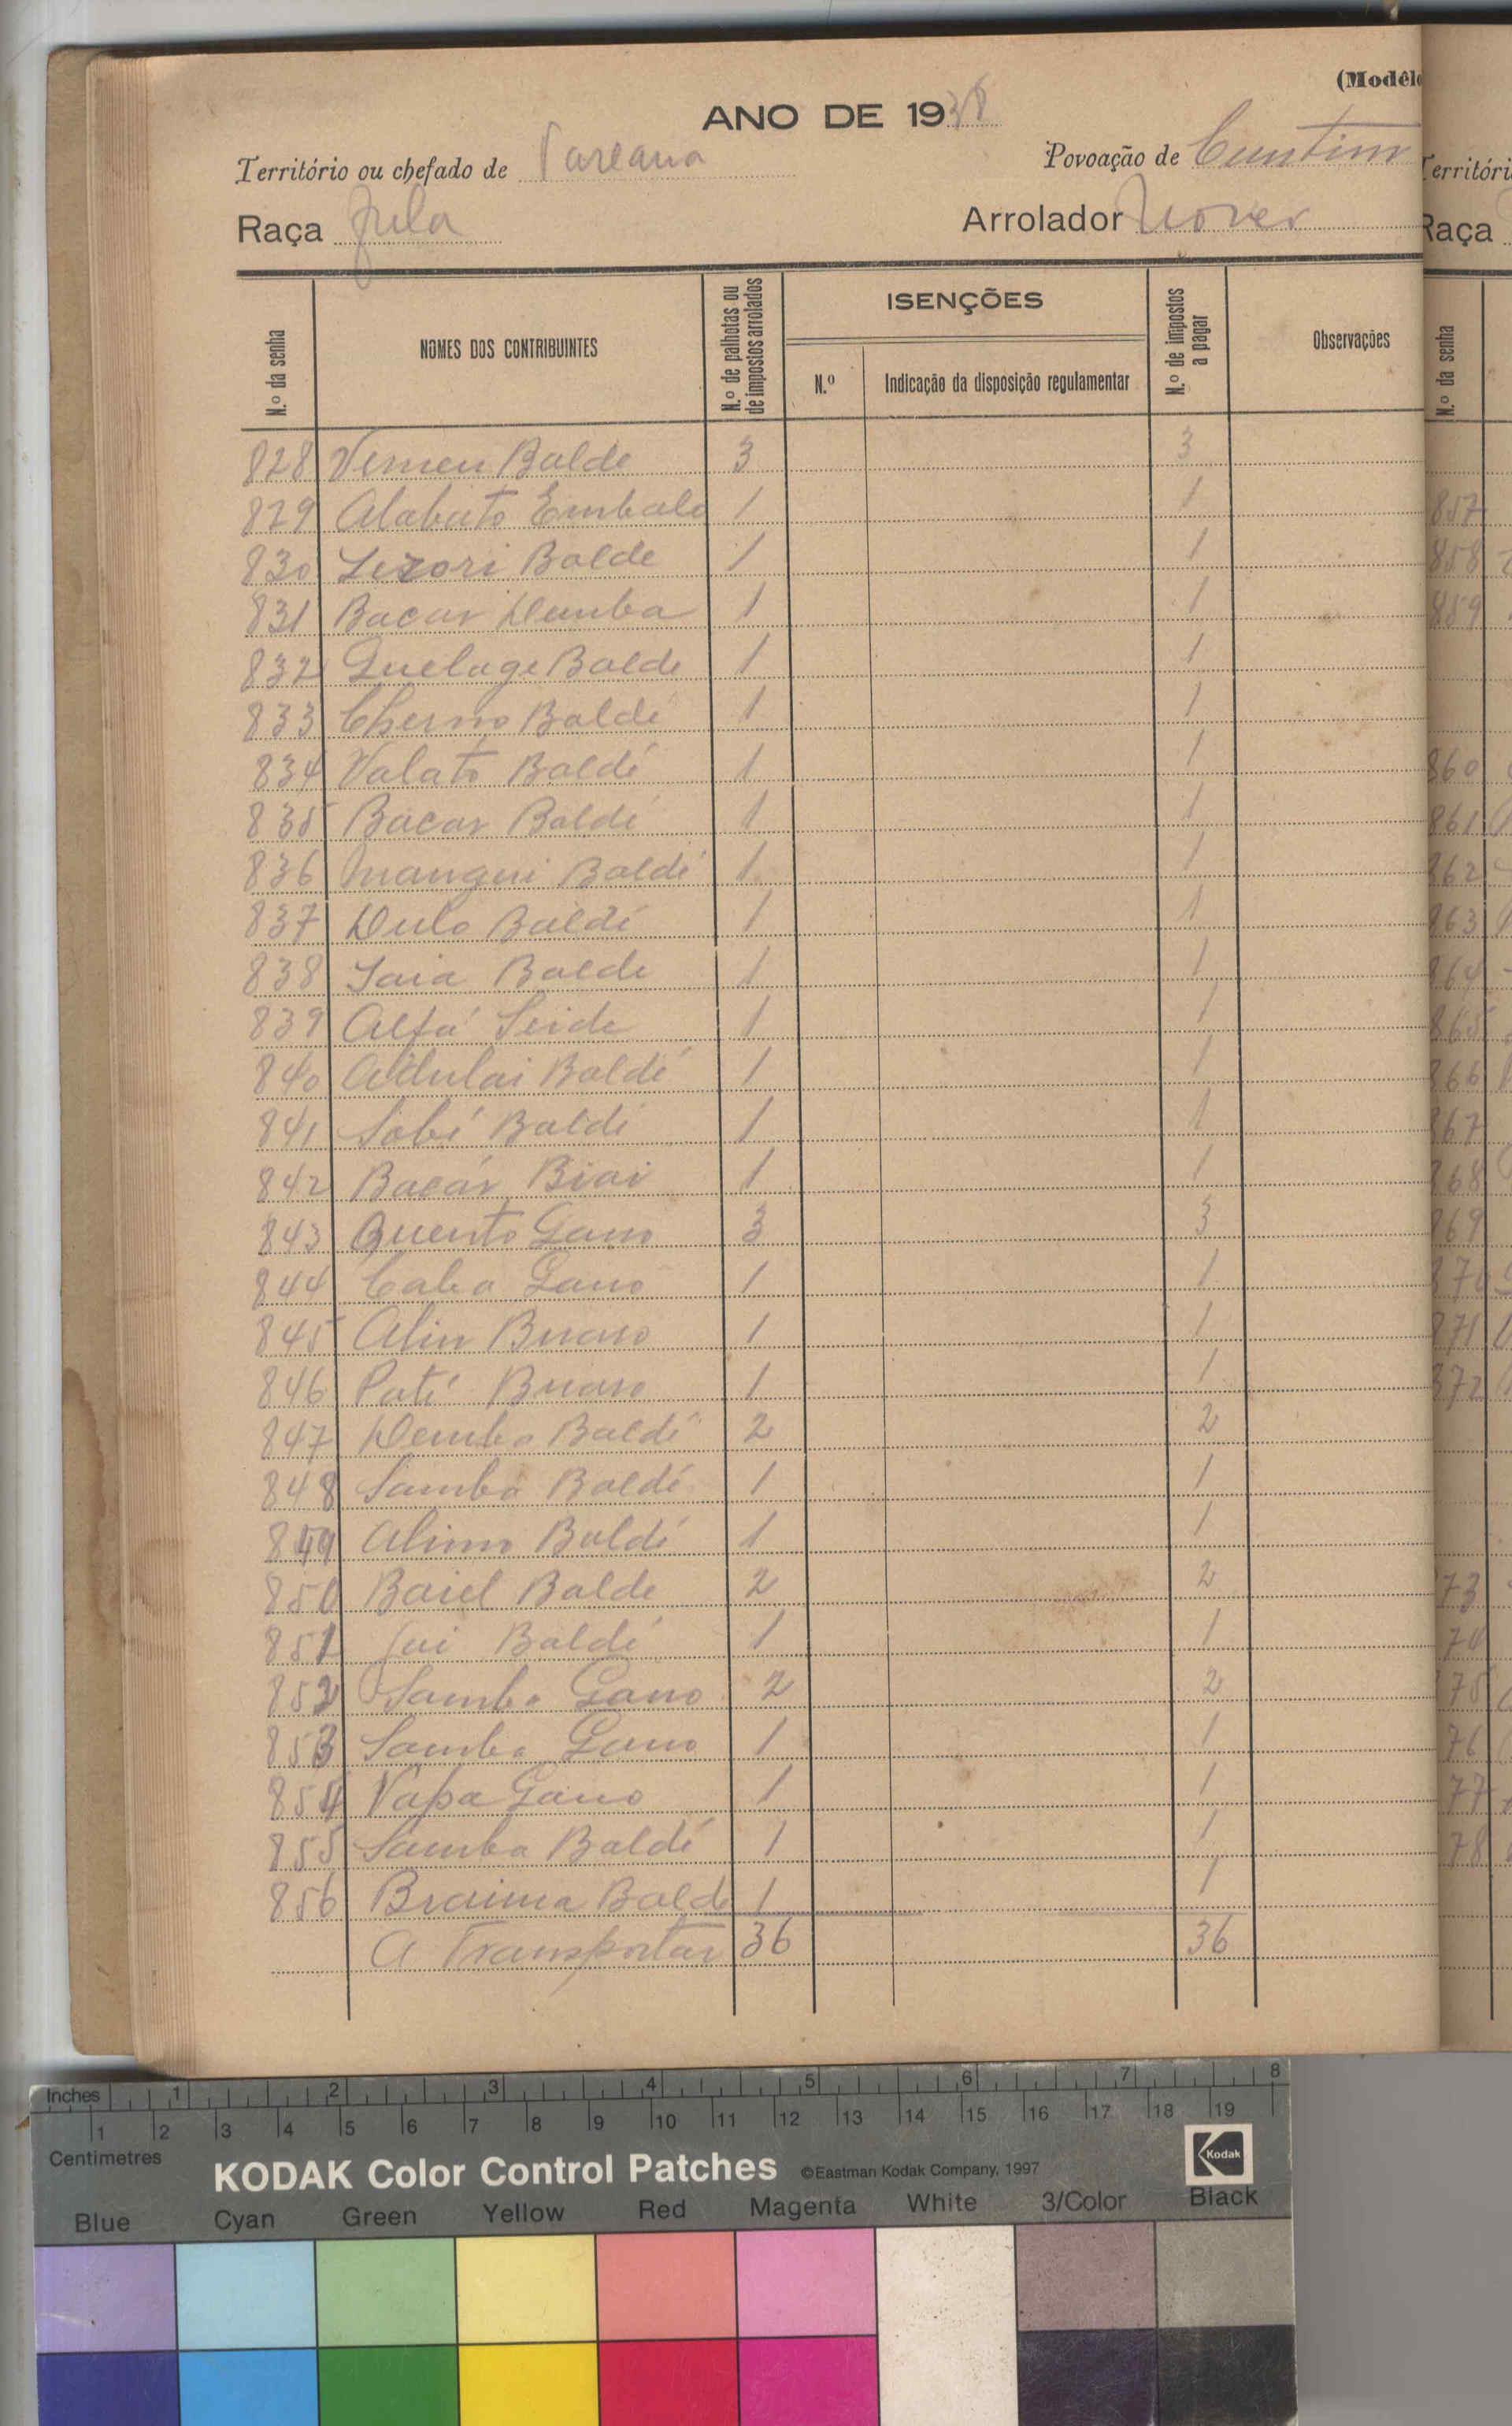 (Modêl
ANO DE 1938
Território ou chefado de Pareana
Povoação de Cuntim
Raça Fula
Arrolador
N.º da senha
NOMES DOS CONTRIBUINTES
N.º de palhotas ou de impostos arrolados
ISENÇÕES
N.º
Indicação da disposição regulamentar
N.º de impostos a pagar
Observações
828 Balde 3 3
829 Alabato Embalo 1 1
830 Balde 1 1
831 Bacar Demba 1 1
832 Guelage Balde 1 1
833 Cherno Baldé 1 1
834 Valato Baldé 1 1
835 Bacar Baldé 1 1
836 Mangui Baldé 1 1
837 Dulo Baldé 1 1
838 Saia Balde 1 1
839 Alfá Seide 1 1
840 Adulai Baldé 1 1
841 Sobé Baldé 1 1
842 Bacár Biai 1 1
843 Quento Gano 3 3
844 Gano 1 1
845 Alin Buaro 1 1
846 Paté Buaro 1 1
847 Demba Baldé 2 2
848 Samba Baldé 1 1
849 Alimo Baldé 1 1
850 Baiel Balde 2 2
851 Baldé 1 1
852 Samba Gano 2 2
853 Samba Gano 1 1
854 Vapa Gano 1 1
855 Samba Baldé 1 1
856 Braima Balde 1 1
A Transportar 36 36
erritóri
Raça
N.º da senha
857
858
859
860
861
862
863
864
865
866
867
868
869
870
871
872
73
74
75
76
77
78
Inches 1 2 3 4 5 6 7 8
1 2 3 4 5 6 7 8 9 10 11 12 13 14 15 16 17 18 19
Centimetres
KODAK Color Control Patches ©Eastman Kodak Company, 1997 Kodak
Blue Cyan Green Yellow Red Magenta White 3/Color Black